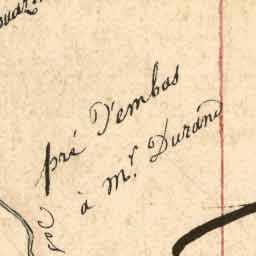 pré d'embas
à Mr. Durand